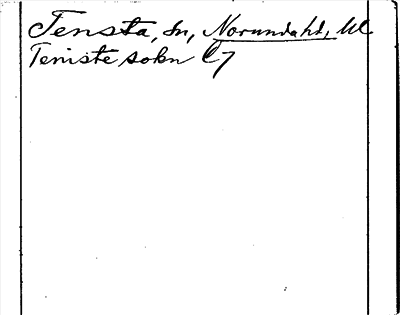 Tensta, Sn, Norunda hd, Ul.
Teniste sokn C7